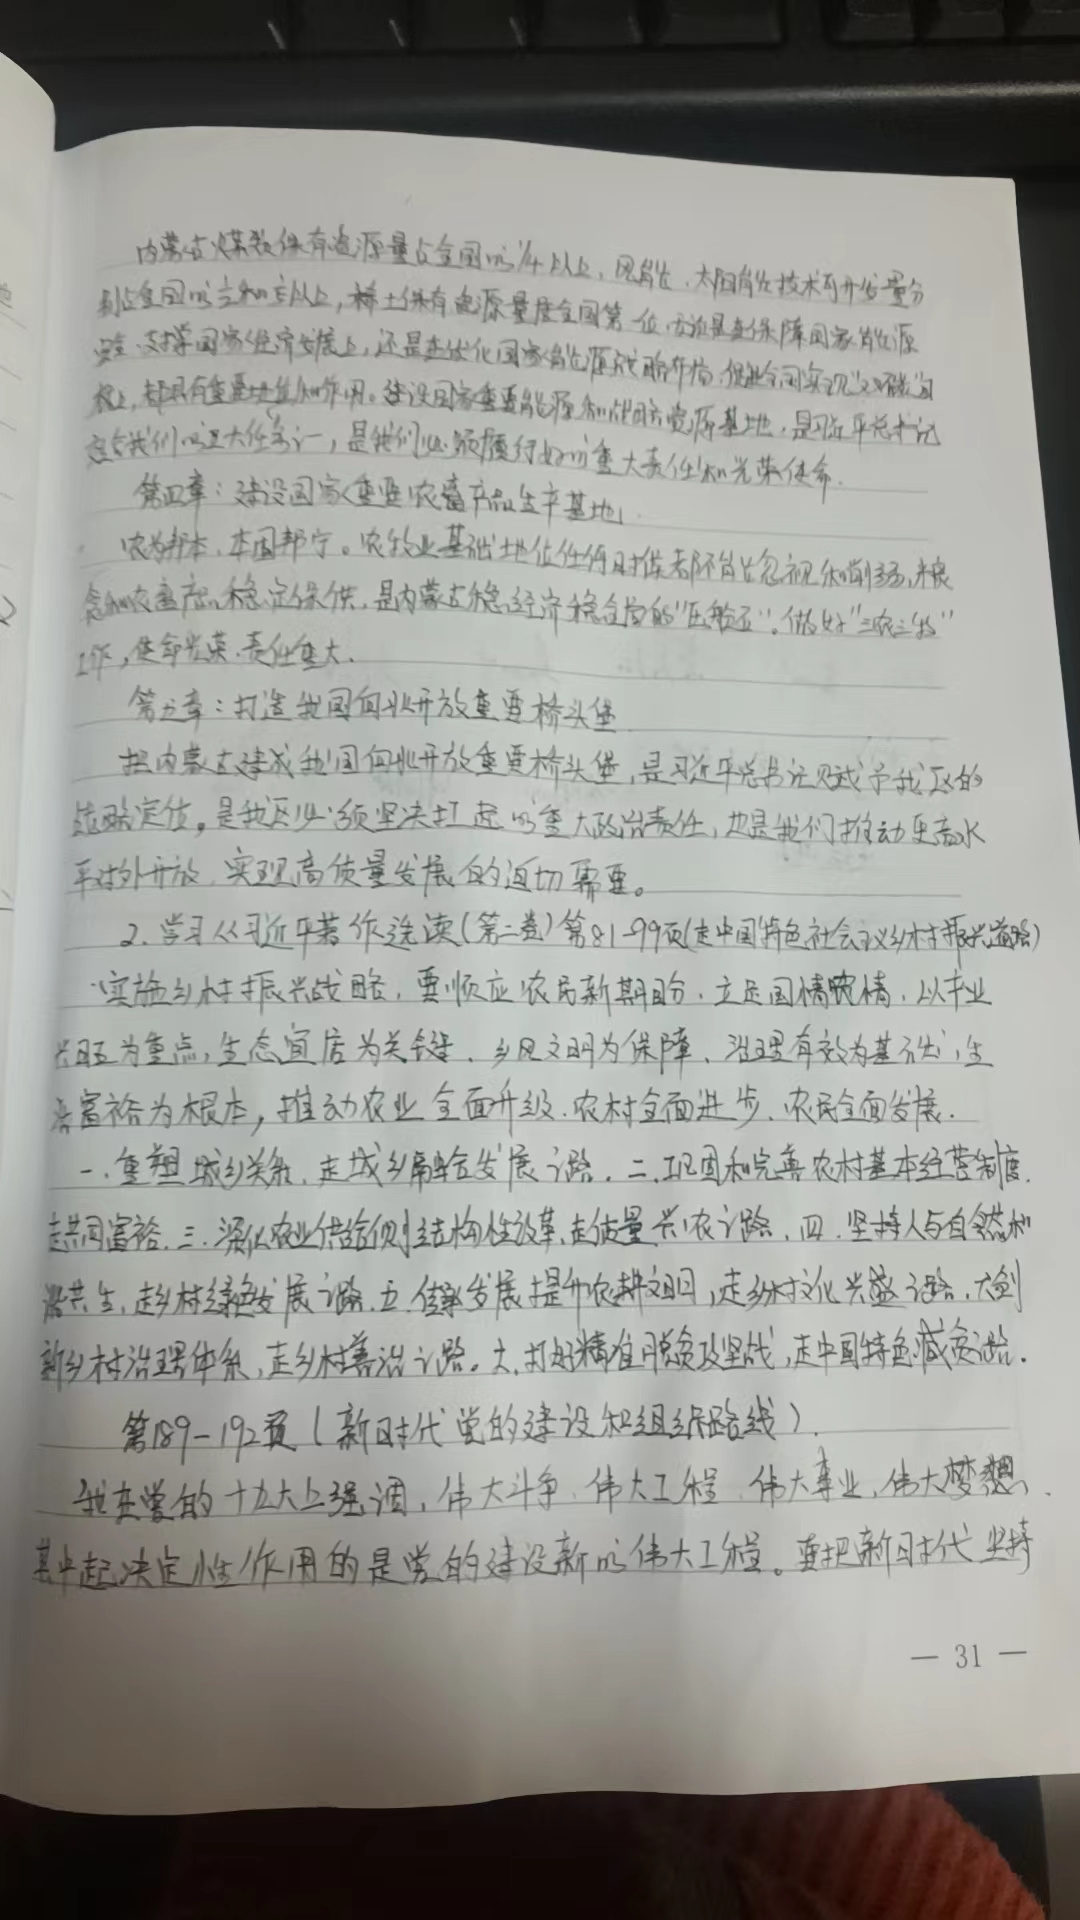 内蒙古煤炭保有资源量占全国的1/4以上，风能、太阳能技术可开发量分
别占全国的 和 以上，稀土保有资源量居全国第一位，无论是在保障国家能源
安全、支撑国家经济发展上，还是在优化国家能源战略布局，促进全国实现“双碳”目
标上，都具有重要地位和作用。建设国家重要能源和战略资源基地，是习近平总书记
交给我们的五大任务之一，是我们必须履行好的重大责任和光荣使命.
第四章：建设国家重要农畜产品生产基地.
农为邦本，本固邦宁。农牧业基础地位任何时候都不能忽视和削弱，粮
食和农畜产品稳定保供，是内蒙古稳经济稳全局的“压舱石”。做好“三农三牧”
工作，使命光荣、责任重大.
第五章：打造我国向北开放重要桥头堡
把内蒙古建成我国向北开放重要桥头堡，是习近平总书记赋予我区的
战略定位，是我区必须坚决扛起的重大政治责任，也是我们推动更高水
平对外开放，实现高质量发展的迫切需要。
2. 学习《习近平著作选读(第二卷)第81-99页(走中国特色社会主义乡村振兴道路)
实施乡村振兴战略，要顺应农民新期盼，立足国情农情，以产业
兴旺为重点，生态宜居为关键，乡风文明为保障，治理有效为基础，生
活富裕为根本，推动农业全面升级、农村全面进步、农民全面发展.
一.重塑城乡关系，走城乡融合发展之路. 二.巩固和完善农村基本经营制度.
走共同富裕. 三.深化农业供给侧结构性改革,走质量兴农之路. 四.坚持人与自然和
谐共生，走乡村绿色发展之路. 五.传承发展提升农耕文明，走乡村文化兴盛之路. 六创
新乡村治理体系，走乡村善治之路。六.打好精准脱贫攻坚战，走中国特色减贫之路.
第189-192页(新时代党的建设和组织路线).
我在党的十九大上强调，伟大斗争、伟大工程、伟大事业、伟大梦想、
其中起决定性作用的是党的建设新的伟大工程。要把新时代坚持
— 31 —